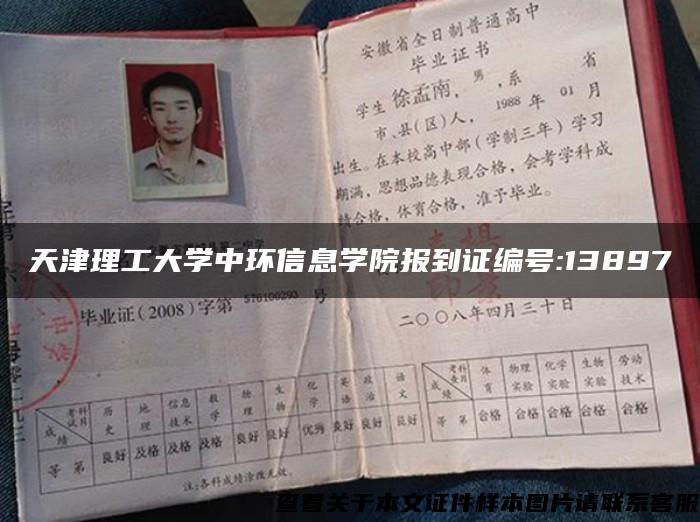 安徽省全日制普通高中
毕业证书
学生徐孟南，男，系 省
市、县(区)人，1988年01月
出生。在本校高中部（学制三年）学习
期满，思想品德表现合格，会考学科成
绩合格，体育合格，准予毕业。
天津理工大学中环信息学院报到证编号:13897
毕业证(2008)字第576100293号
二〇〇八年四月三十日
考试科目 历史 地理 信息技术 数学 物理 生物 化学 英语 政治 语文
成绩
等第 良好 及格 及格 及格 良好 良好 优秀 良好 良好 良好
注:各科成绩涂改无效。
考查科目 体育 物理实验 化学实验 生物实验 劳动技术
成绩
等第 合格 合格 合格 合格 合格
查看关于本文证件样本图片请联系客服